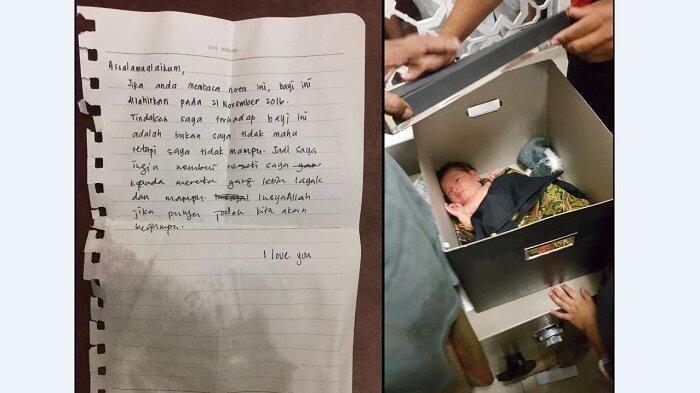 LOVE FOREVER
Assalamualaikum,
Jika anda membaca nota ini, bayi ini
dilahirkan pada 21 November 2016.
Tindakan saya terhadap bayi ini
adalah bukan saya tidak mahu
tetapi saya tidak mampu. Jadi saya
ingin memberi rezeki saya
kepada mereka yang lebih layak
dan mampu InsyaAllah
jika punya jodoh kita akan
berjumpa.
I love you